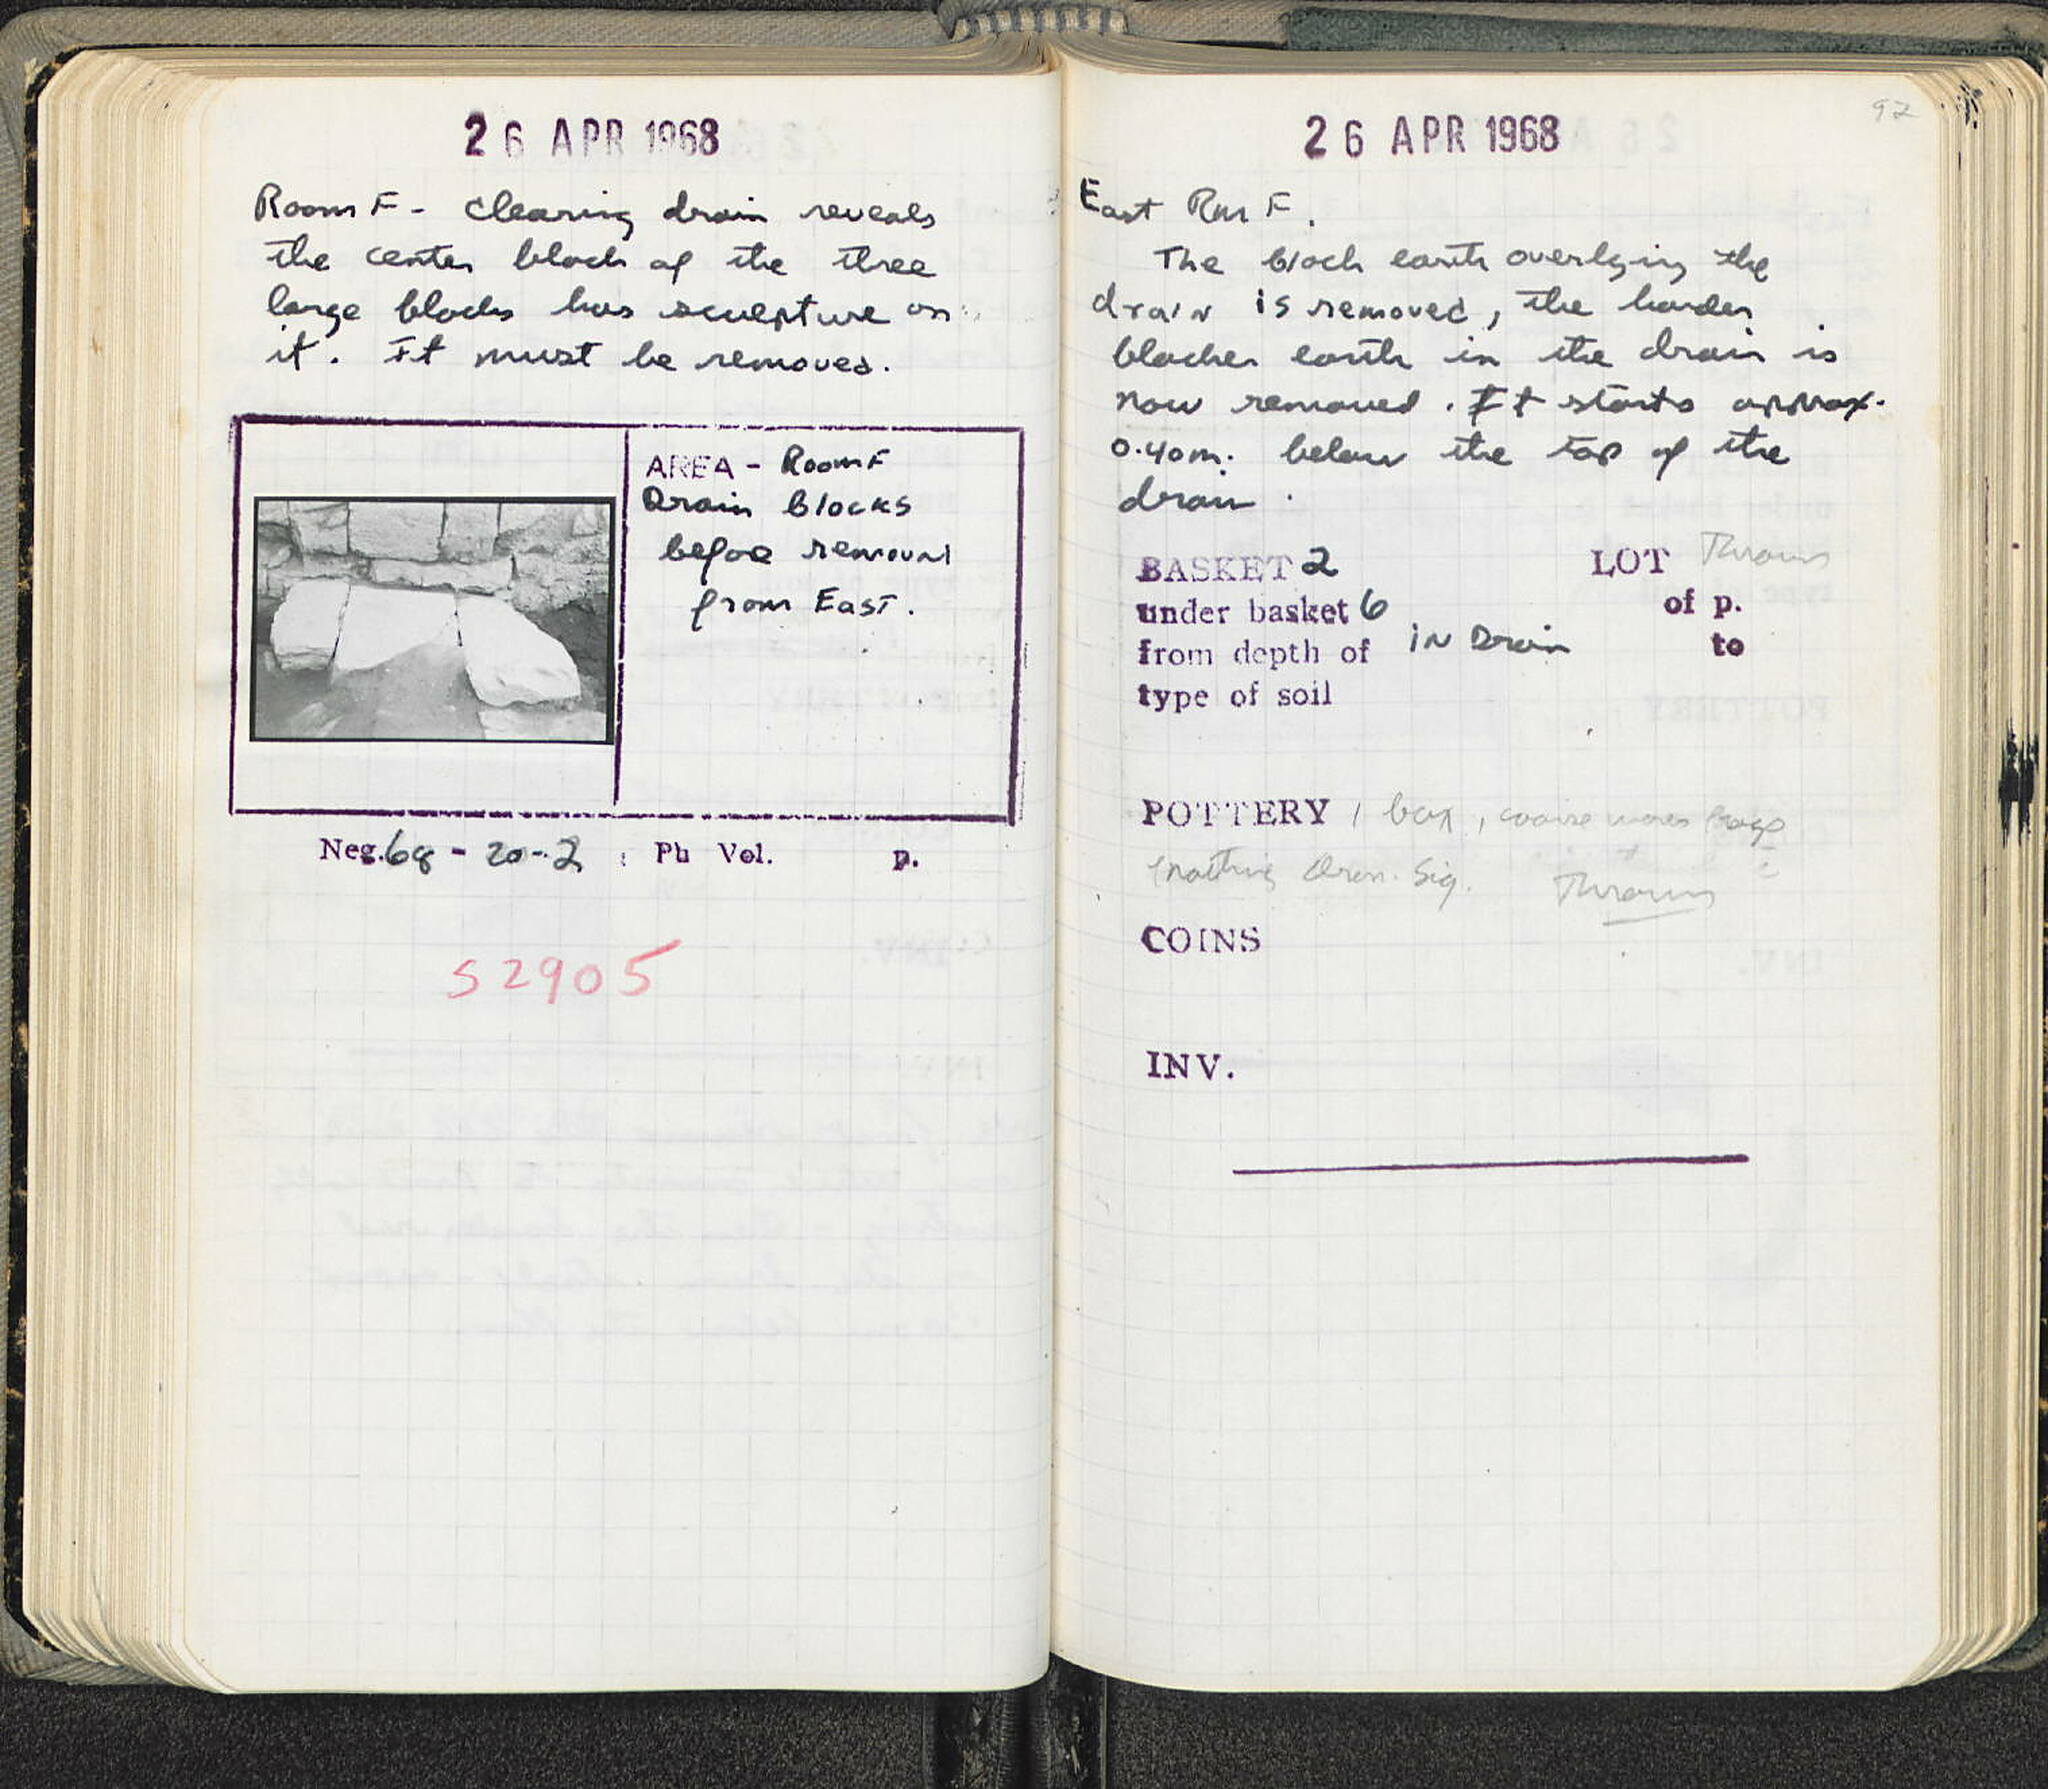 26 APR 1968
Room F - Clearing drain reveals
the center block of the three
large blocks has sculpture on
it. It must be removed.
AREA - Room F
Drain blocks
before removal
from East.
Neg. 68 - 20 - 2 : Ph Vol. p.
S 2905
92
26 APR 1968
East Rm F.
The black earth overlying the
drain is removed, the harder
blacker earth in the drain is
now removed. It starts approx.
0.40m. below the top of the
drain.
BASKET 2 LOT Thrown
under basket 6 of p.
from depth of IN Drain to
type of soil
POTTERY 1 box, coarse wares
nothing Sig. Thrown
COINS
INV.